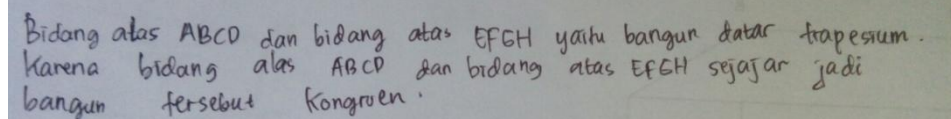 Bidang alas ABCD dan bidang atas EFGH yaitu bangun datar trapesium.
Karena bidang alas ABCD dan bidang atas EFGH sejajar jadi
bangun tersebut kongruen.